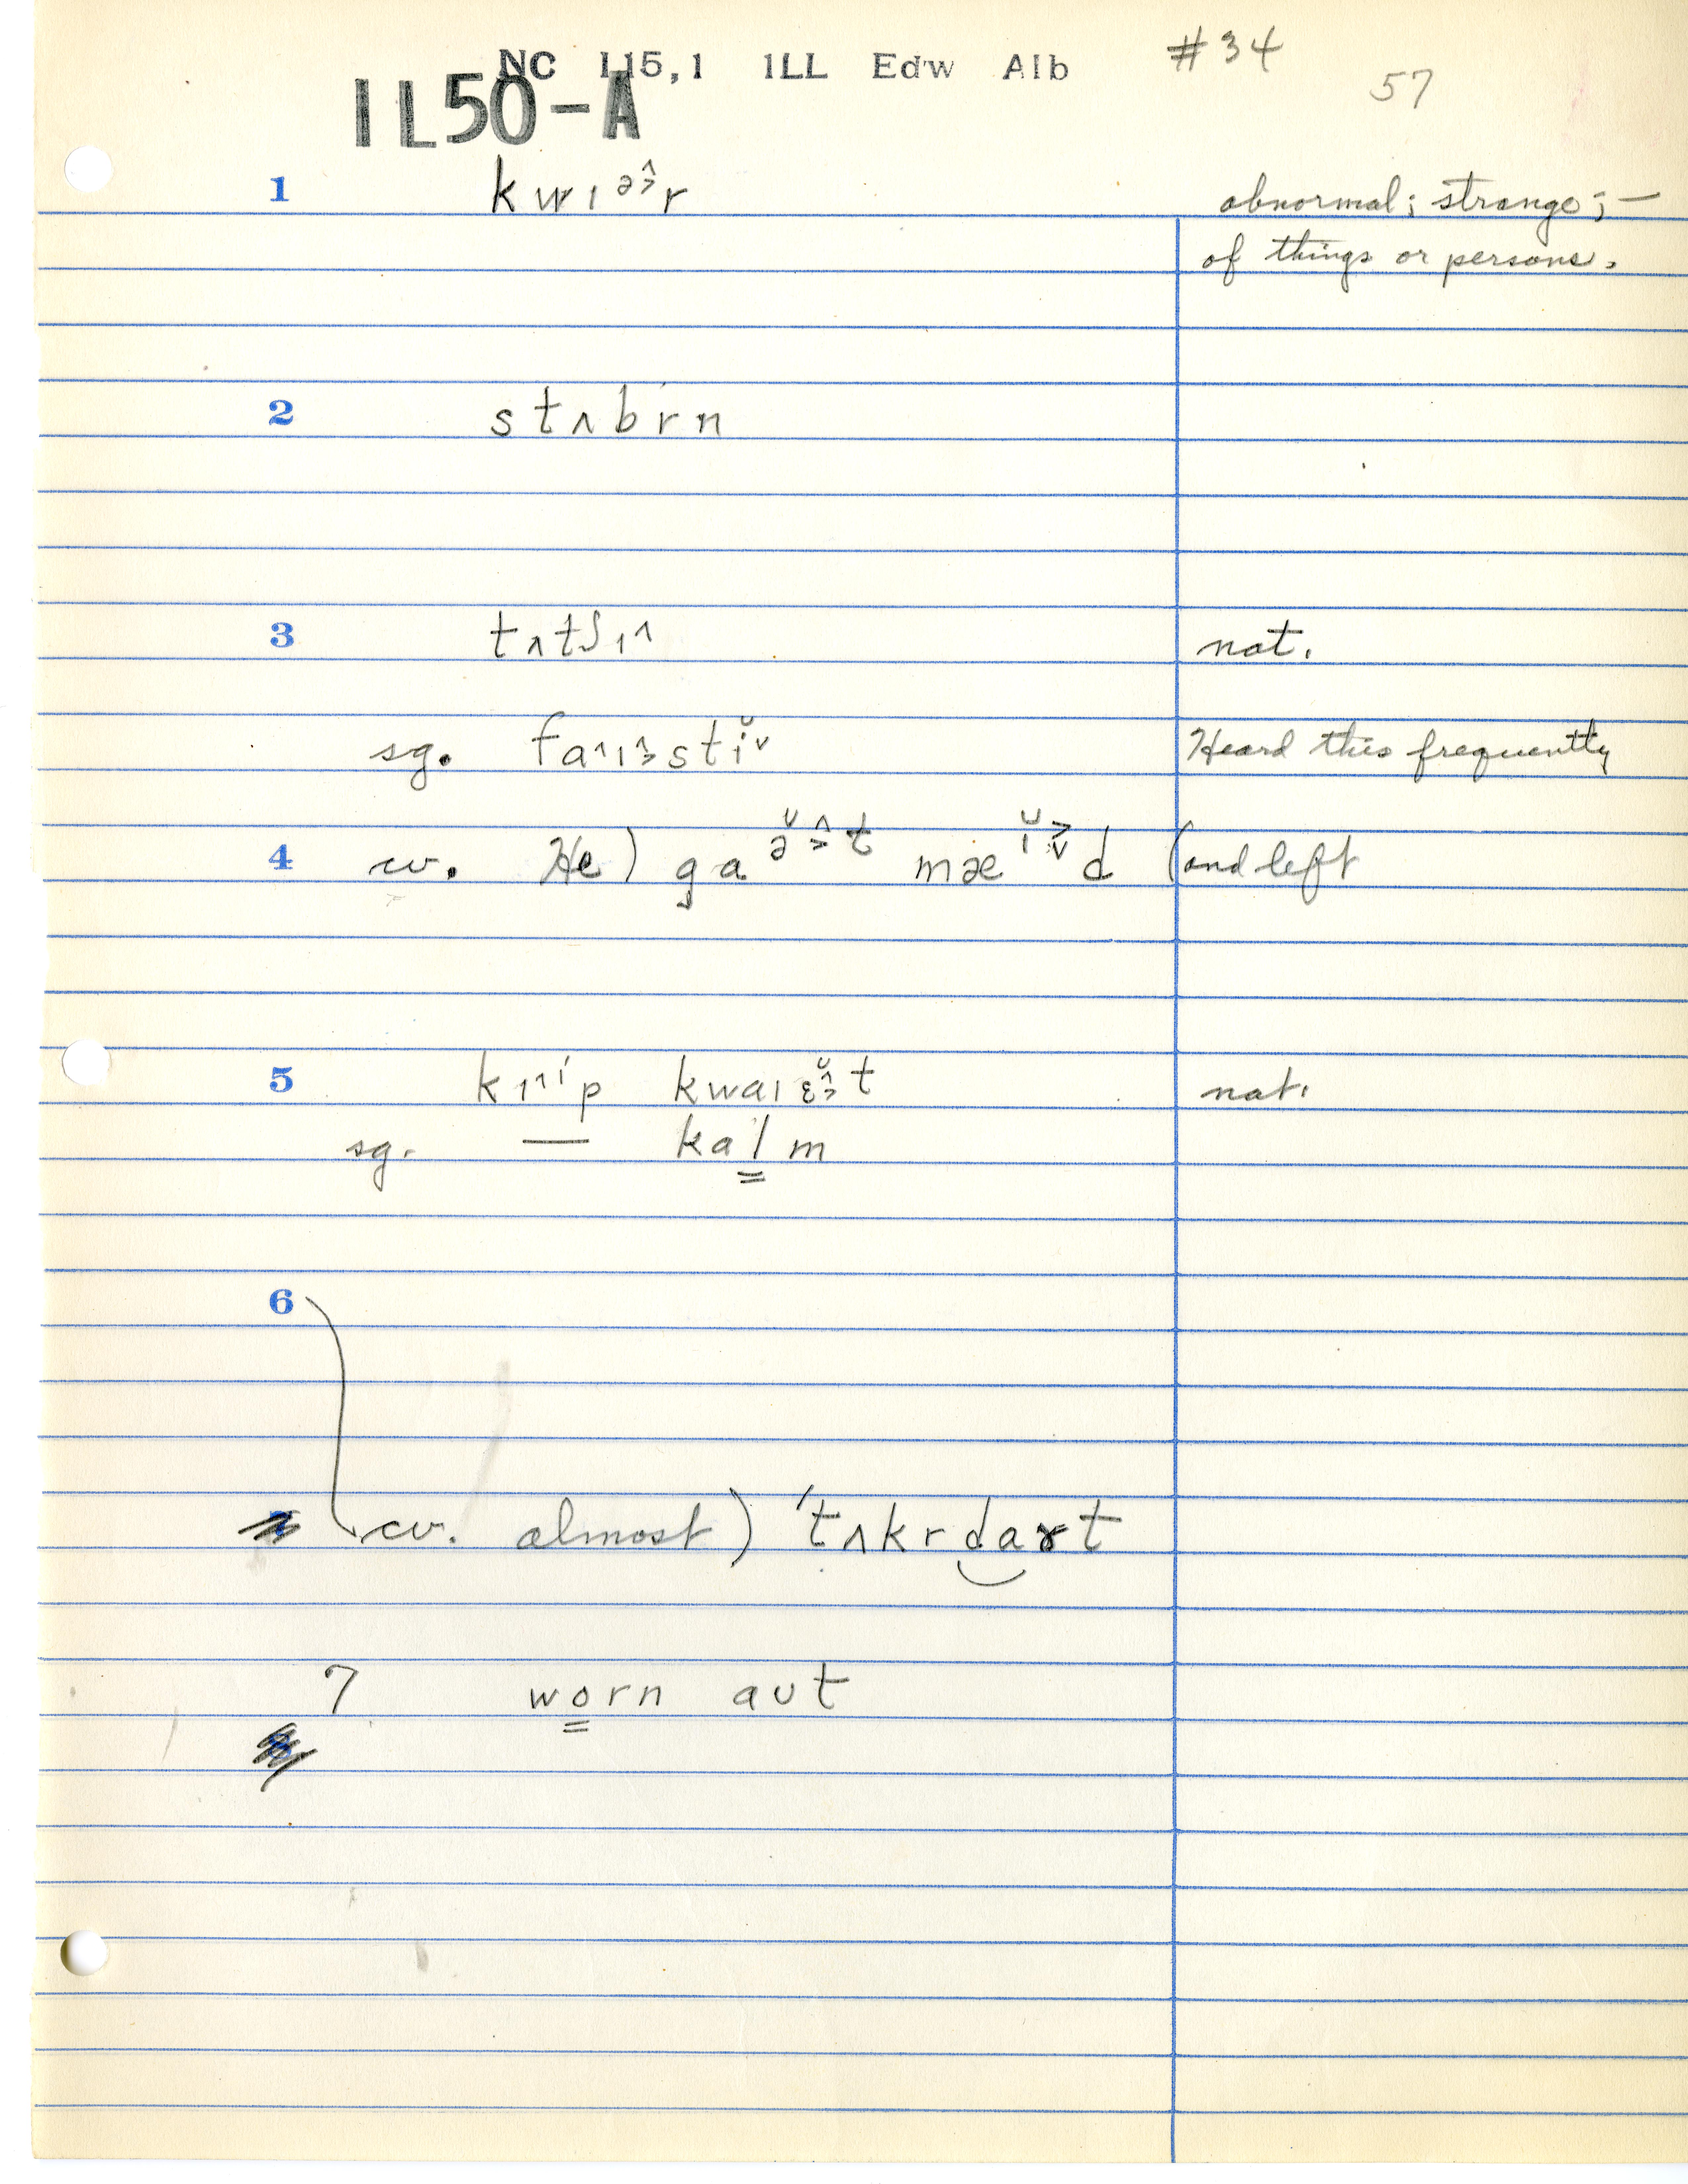 NC 115,1 1LL Edw Alb #34
57
IL50-A
1 kwɪə˄˃r abnormal; strange; —
of things or persons.
2 stʌbrn
3 tʌtʃɪ˄ nat.
sg. fa˄ɪ˄˃stĭ˅ Heard this frequently
4 cv. He) gaə̆˄˃t mæĭ˃˅d (and left
5 kɪ˄ip kwaɪɛ̆˄˃t nat.
sg. — kalm
6
cv. almost) ˈtʌkrdaɤt
7 worn aʊt